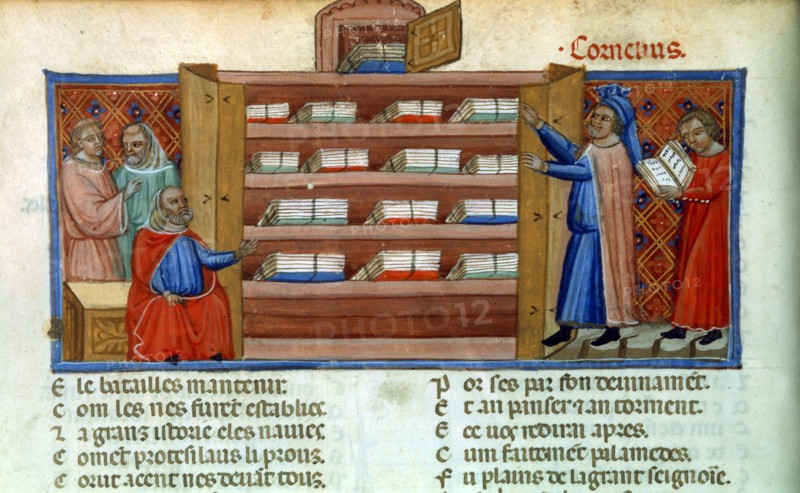 Cornelius.
E le batailles mantenir.
C om les nes furēt establies
⁊ a granz istoire eles nauies
C omēt protesilaus li prouz.
C orut acent nes deuāt touz.
P or ses par son deuinamēt.
E t an panser ⁊ an torment.
E ce uos redirai apres.
C um faitement palamedes.
F u plains de la grant seignoīe.
PHOTO12